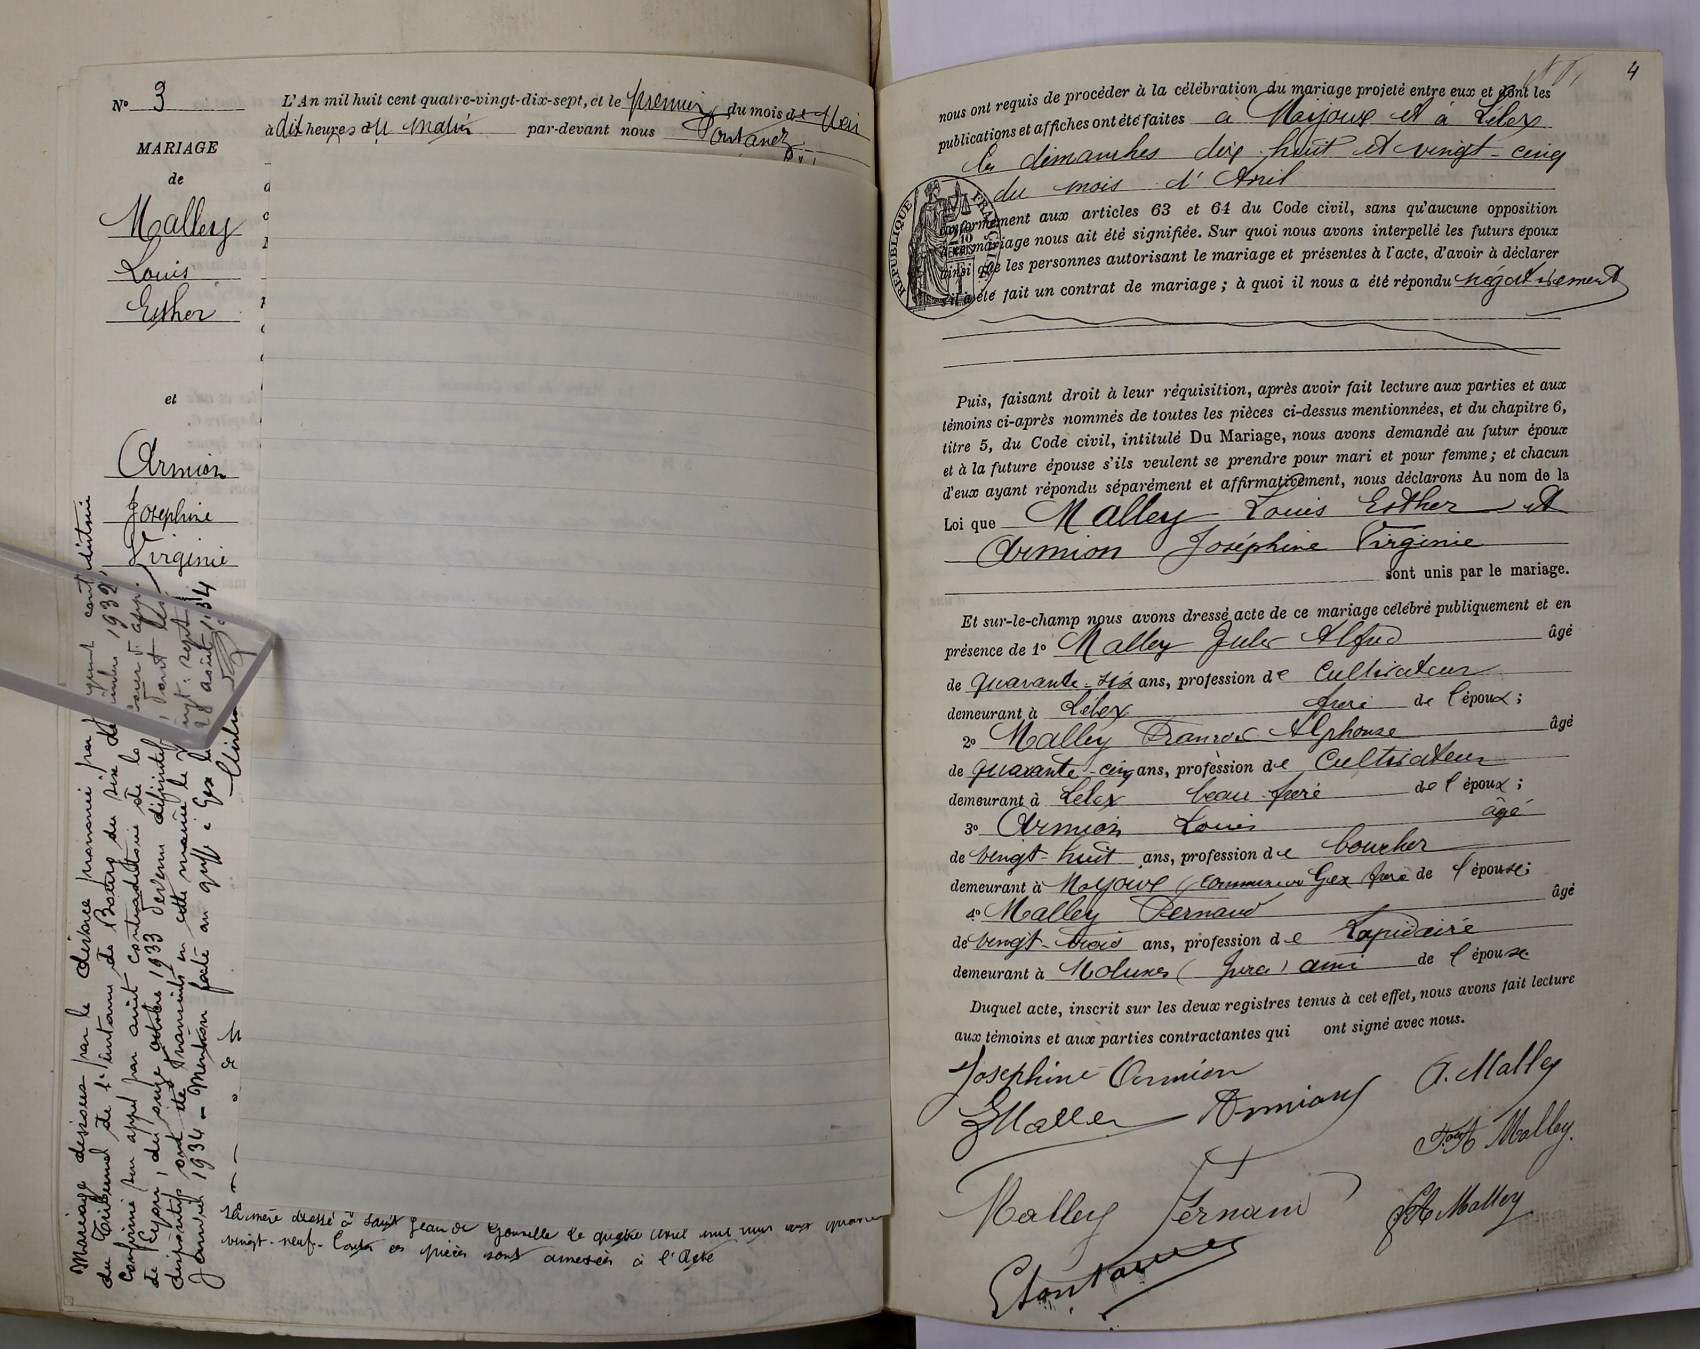 Nº 3
MARIAGE
de
Malley
Louis
Esther
et
Armion
Joséphine
Virginie
Mariage dissous par le divorce prononcé par jugement contradictoire
du Tribunal de 1e instance de Bourg du six 1932,
confirmé sur appel par arrêt contradictoire de la cour d'app.
de Lyon, du onze octobre 1933 devenu définitif, dont les
dispositifs ont été transcrits en cette mairie le vingt-sept
Janvier 1934 - Mention faite au greffe à Gex le 28 août 1934
L'An mil huit cent quatre-vingt-dix-sept, et le premier du mois de Mai
à dix heures du matin par-devant nous Fontanez
La mère dressé à Saint Jean de Gonville le quatre Avril mil huit cent quatre
vingt-neuf. Toutes ces pièces sont annexées à l'Acte
4
nous ont requis de procéder à la célébration du mariage projeté entre eux et dont les
publications et affiches ont été faites à Mijoux et à Lélex
les dimanches dix huit et vingt-cinq
du mois d'Avril
RÉPUBLIQUE FRANÇAISE
conformément aux articles 63 et 64 du Code civil, sans qu'aucune opposition
à ce mariage nous ait été signifiée. Sur quoi nous avons interpellé les futurs époux
ainsi que les personnes autorisant le mariage et présentes à l'acte, d'avoir à déclarer
s'il a été fait un contrat de mariage ; à quoi il nous a été répondu négativement
Puis, faisant droit à leur réquisition, après avoir fait lecture aux parties et aux
témoins ci-après nommés de toutes les pièces ci-dessus mentionnées, et du chapitre 6,
titre 5, du Code civil, intitulé Du Mariage, nous avons demandé au futur époux
et à la future épouse s'ils veulent se prendre pour mari et pour femme ; et chacun
d'eux ayant répondu séparément et affirmativement, nous déclarons Au nom de la
Loi que Malley Louis Esther et
Armion Joséphine Virginie
sont unis par le mariage.
Et sur-le-champ nous avons dressé acte de ce mariage célébré publiquement et en
présence de 1º Malley Jules Alfred âgé
de quarante-six ans, profession de Cultivateur
demeurant à Lélex frère de l'époux ;
2º Malley François Alphonse âgé
de quarante-cinq ans, profession de Cultivateur
demeurant à Lélex beau-frère de l'époux ;
3º Armion Louis âgé
de vingt-huit ans, profession de boucher
demeurant à Mijoux (commune de Gex frère de l'épouse ;
4º Malley Fernand âgé
de vingt-trois ans, profession de Lapidaire
demeurant à Molunes (Jura) ami de l'épouse
Duquel acte, inscrit sur les deux registres tenus à cet effet, nous avons fait lecture
aux témoins et aux parties contractantes qui ont signé avec nous.
Joséphine Armion
A. Malley
E Malley
Armion
Malley.
Malley Fernand
Malley